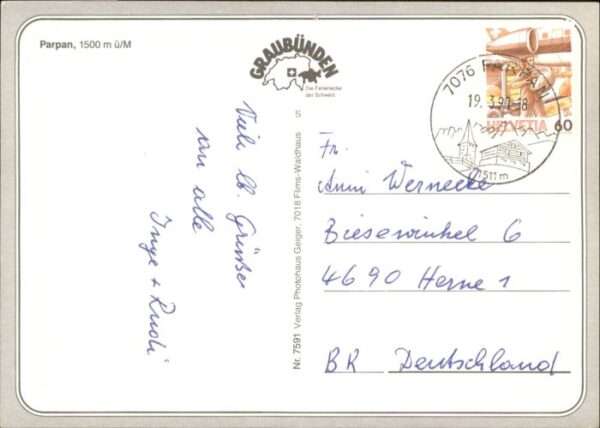 Parpan, 1500 m ü/M
GRAUBÜNDEN
Die Ferienecke
der Schweiz.
Viele lb. Grüsse
an alle
Inge + Rudi
S
Nr. 7591 Verlag Photohaus Geiger, 7018 Flims-Waldhaus
7076 PARPAN
19. 3.90-18
1511 m
HELVETIA 60
Fr.
Anni Wernecke
Biesewinkel 6
4690 Herne 1
BR Deutschland